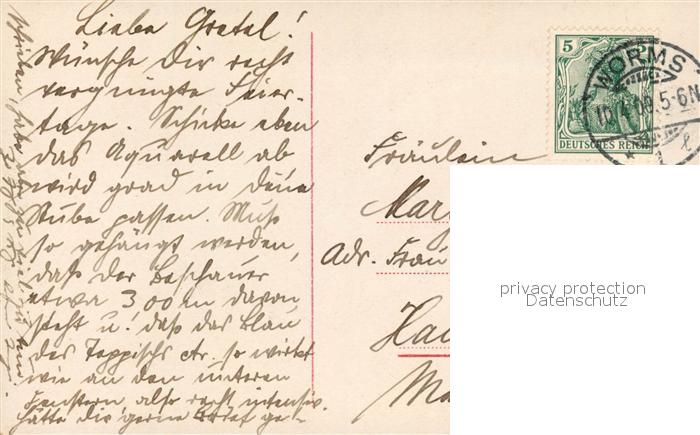 Liebe Gretel!
Wünsche Dir recht
vergnügte Feier-
tage. Schicke eben
das Aquarell ab
wird grad in deine
Stube passen. Muß
so gehängt werden,
daß der Beschauer
etwa 3 00 m davon
steht u! daß das Blau
des Teppischs etc. so wirkt
wie an den unteren
Fenstern, also recht intensiv.
hätte dir gerne Brief ge-
schrieben, habe aber zu viel zu tun.
5 5
DEUTSCHES REICH
WORMS
5-6N
Fräulein
Mar
Adr. Frau
Ha
Ma
privacy protection
Datenschutz